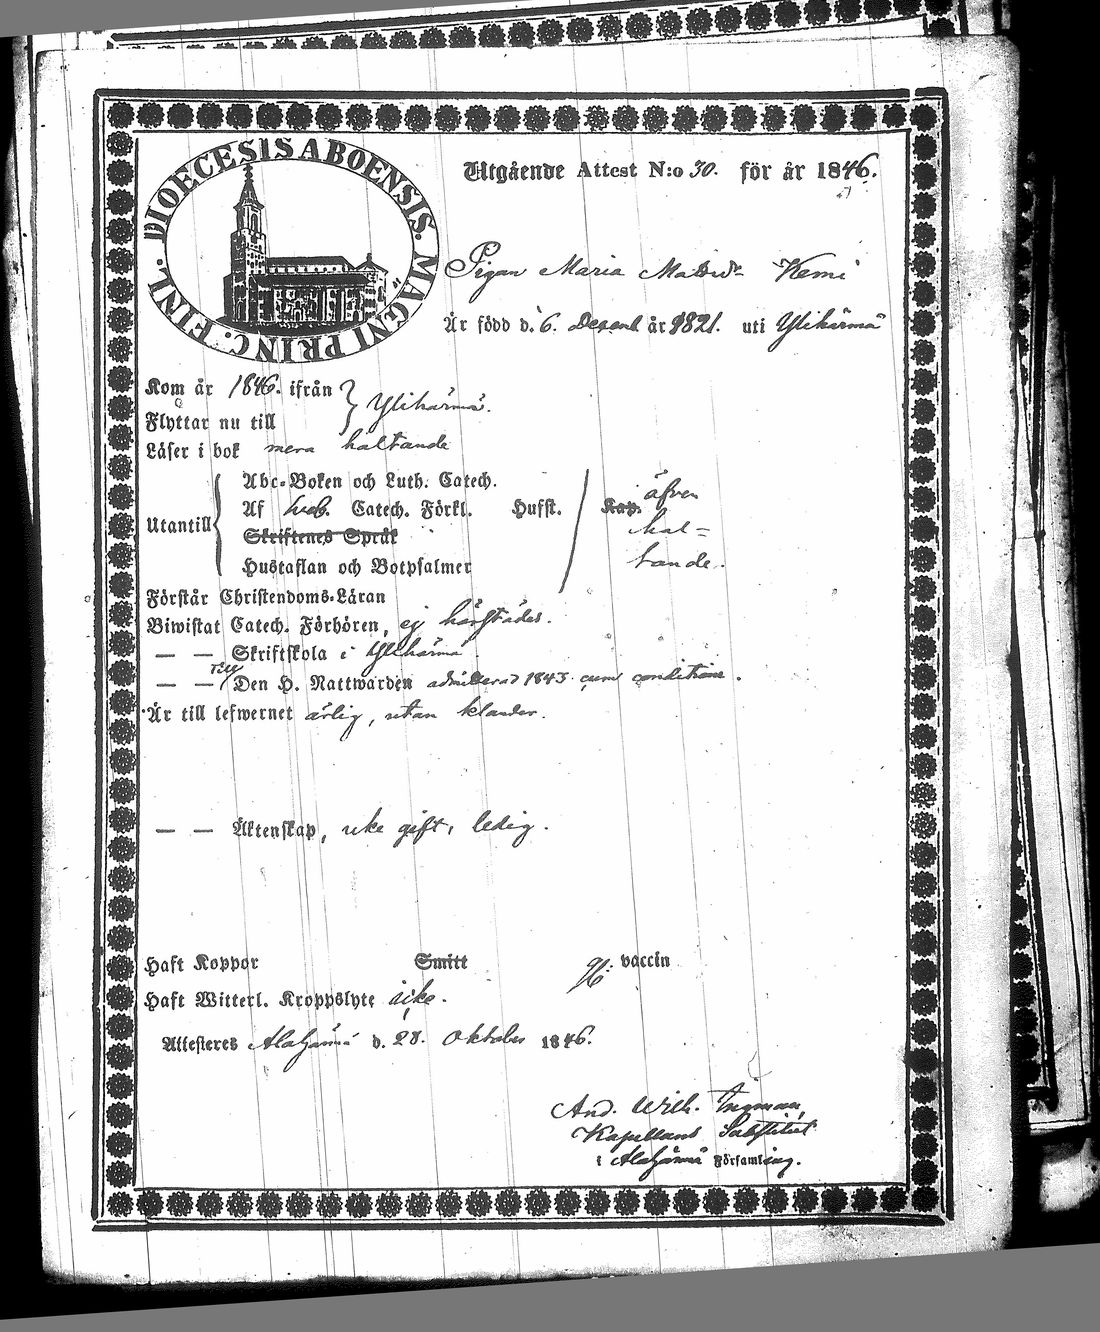 DIOECESIS ABOENSIS. MAGNI PRINC. FINL.
Utgående Attest N:o 30. för år 1846.
Pigan Maria Kemi
Är född d. 6. Decemb år 1821. uti Ylihärmä
Kom år 1846. ifrån
Flyttar nu till } Ylihärmä.
Läser i bok mera haltande
Utantill {
Abc-Boken och Luth. Catech.
Af Catech. Förkl. Hufst. / Kap. äfven
Skriftenes Språk hal=
Hustaflan och Botpsalmer tande.
Förstår Christendoms-Läran
Biwistat Catech. Förhören, ej härstädes.
— — Skriftskola i Ylihärmä.
— — Till Den H. Nattwarden admitterad 1843 cum conditione.
Är till lefwernet ärlig, utan klander.
— — Äktenskap, icke gift, ledig.
Haft Koppor Smitt vaccin
Haft Witterl. Kroppslyte icke.
Attesteres Alahärmä d. 28. Oktober 1846.
And. Wilh. Ingman,
Kapellans Substitut
i Alahärmä Församling.